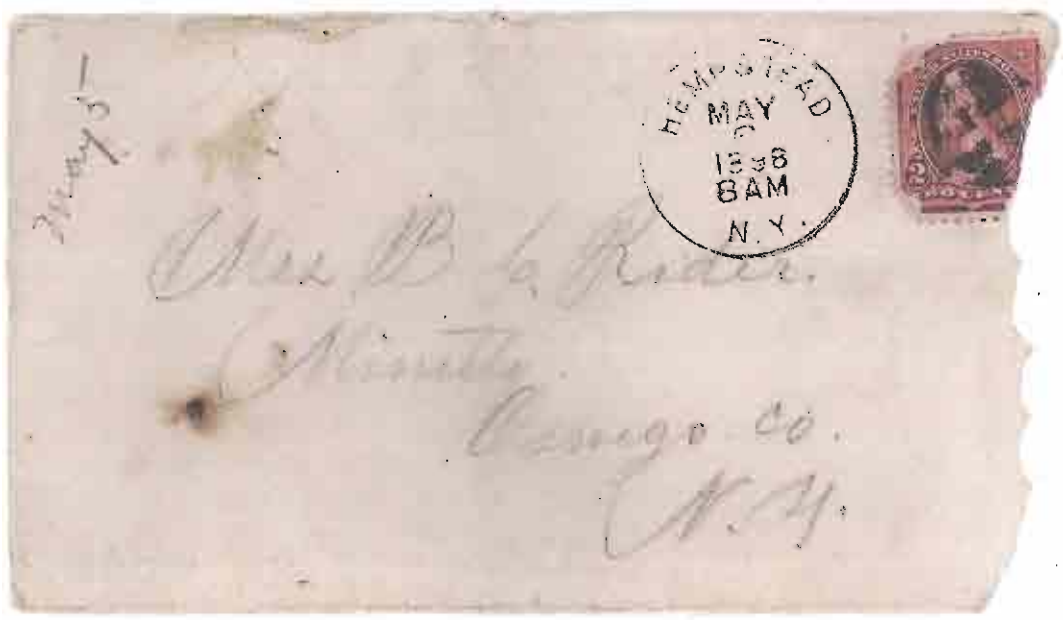 May 5
HEMPSTEAD
MAY
1898
8AM
N.Y.
2
Mrs B
Minetto
Oswego Co.
N.Y.